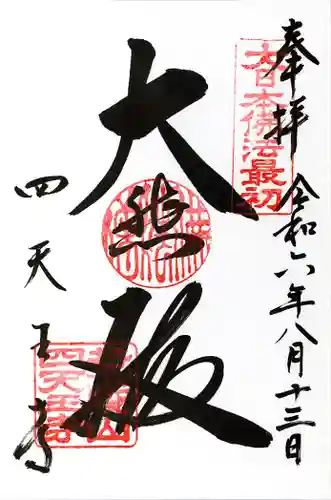 奉拝 令和六年八月十三日
大日本佛法最初
大悲殿
四天王寺